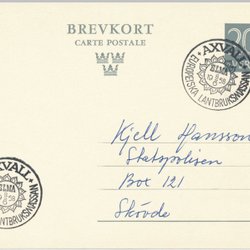 BREVKORT
CARTE POSTALE
20
AXVALL
EUROPEISKA LANTBRUKSMÄSSAN
SLMA
Kjell Hansson
Statspolisen
Box 121
Skövde
AXVALL
SLMA
LANTBRUKSMÄSSAN